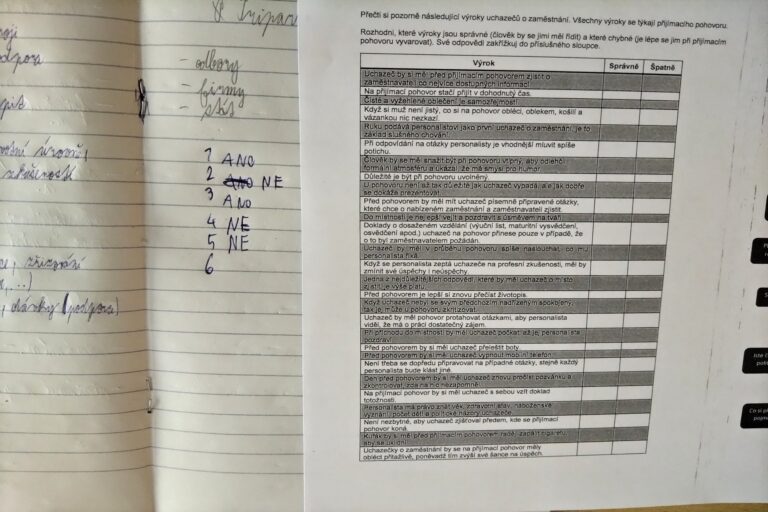 - odbory
- firmy
1 ANO
2 ANO NE
3 ANO
4 NE
5 NE
6
Přečti si pozorně následující výroky uchazečů o zaměstnání. Všechny výroky se týkají přijímacího pohovoru.
Rozhodni, které výroky jsou správné (člověk by se jimi měl řídit) a které chybné (je lépe se jim při přijímacím
pohovoru vyvarovat). Své odpovědi zakřížkuj do příslušného sloupce.
Výrok Správně Špatně
Uchazeč by si měl před přijímacím pohovorem zjistit o
zaměstnavateli co nejvíce dostupných informací.
Na přijímací pohovor stačí přijít v dohodnutý čas.
Čisté a vyžehlené oblečení je samozřejmostí.
Když si muž není jistý, co si na pohovor obléci, oblekem, košilí a
vázankou nic nezkazí.
Ruku podává personalistovi jako první uchazeč o zaměstnání, je to
základ slušného chování.
Při odpovídání na otázky personalisty je vhodnější mluvit spíše
potichu.
Člověk by se měl snažit být při pohovoru vtipný, aby odlehčil
formální atmosféru a ukázal, že má smysl pro humor.
Důležité je být při pohovoru uvolněný.
U pohovoru není až tak důležité jak uchazeč vypadá, ale jak dobře
se dokáže prezentovat.
Před pohovorem by měl mít uchazeč písemně připravené otázky,
které chce o nabízeném zaměstnání a zaměstnavateli zjistit.
Do místnosti je nejlepší vejít a pozdravit s úsměvem na tváři.
Doklady o dosaženém vzdělání (výuční list, maturitní vysvědčení,
osvědčení apod.) uchazeč na pohovor přinese pouze v případě, že
o to byl zaměstnavatelem požádán.
Uchazeč by měl v průběhu pohovoru spíše naslouchat, co mu
personalista říká.
Když se personalista zeptá uchazeče na profesní zkušenosti, měl by
zmínit své úspěchy i neúspěchy.
Jedna z nejdůležitějších odpovědí, které by měl uchazeč o místo
zjistit je výše platu.
Před pohovorem je lepší si znovu přečíst životopis.
Když uchazeč nebyl se svým předchozím nadřízeným spokojený,
tak jej může u pohovoru zkritizovat.
Uchazeč by měl pohovor protahovat otázkami, aby personalista
viděl, že má o práci dostatečný zájem.
Při příchodu do místnosti by měl uchazeč počkat až jej personalista
pozdraví.
Před pohovorem by si měl uchazeč přeleštit boty.
Před pohovorem by si měl uchazeč vypnout mobilní telefon.
Není třeba se dopředu připravovat na případné otázky, stejně každý
personalista bude klást jiné.
Den před pohovorem by si měl uchazeč znovu pročíst pozvánku a
zkontrolovat, zda na nic nezapomněl.
Na přijímací pohovor by si měl uchazeč s sebou vzít doklad
totožnosti.
Personalista má právo znát věk, zdravotní stav, náboženské
vyznání, počet dětí a politické názory uchazeče.
Není nezbytné, aby uchazeč zjišťoval předem, kde se přijímací
pohovor koná.
Kuřák by si měl před přijímacím pohovorem raději zapálit cigaretu,
aby se uklidnil.
Uchazečky o zaměstnání by se na přijímací pohovor měly
obléci přitažlivě, poněvadž tím zvýší své šance na úspěch.